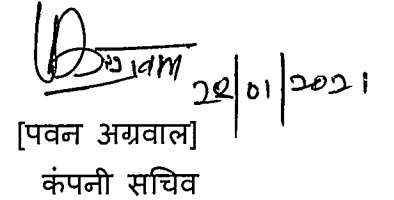 28/01/2021
[पवन अग्रवाल]
कंपनी सचिव